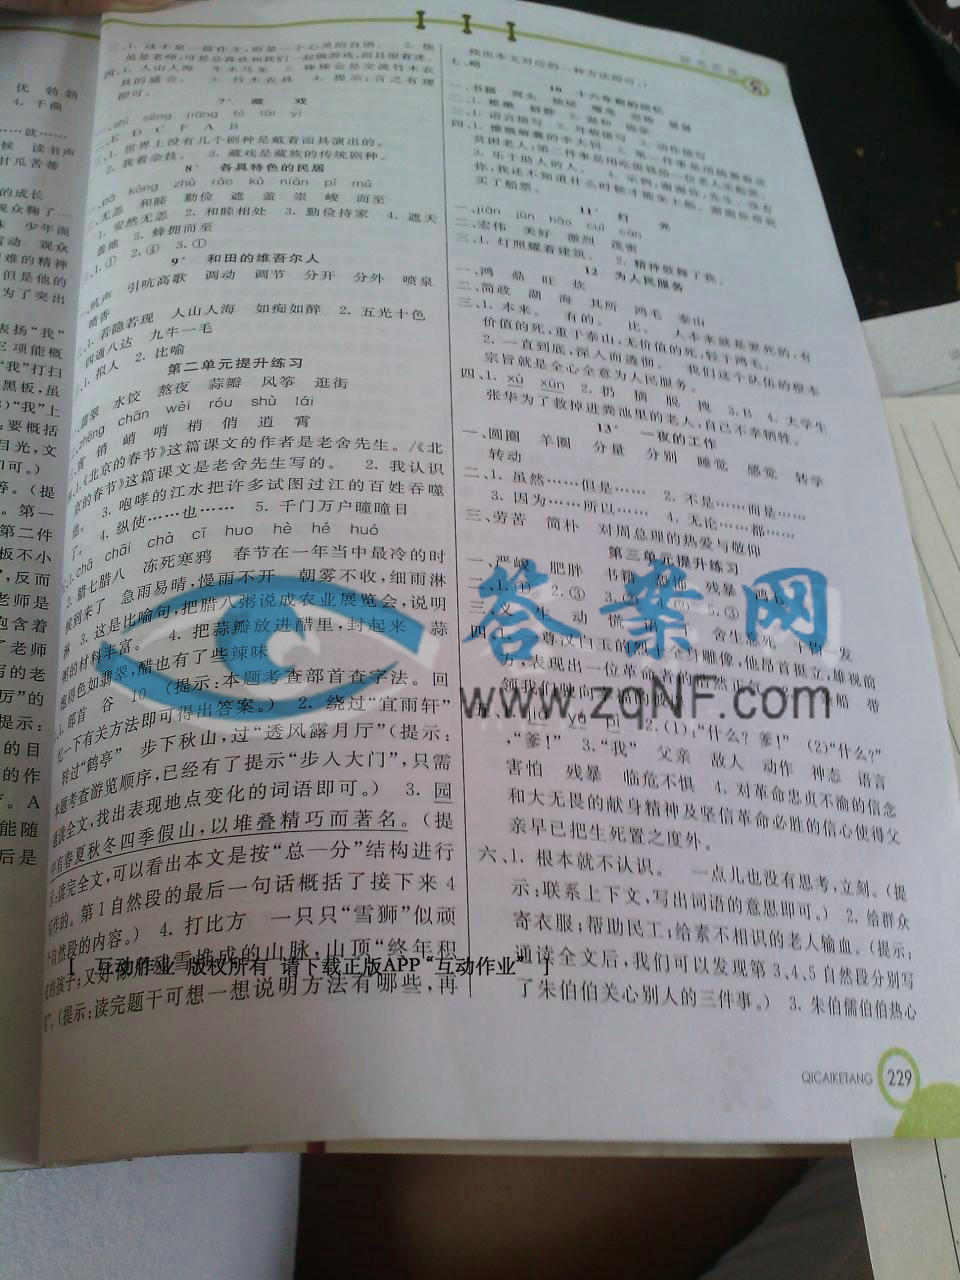 优 勃勃
4. 千曲
……就……
候 读书声
甘瓜苦蒂
的成长
观众鞠了一
少年面
观众
难的精神
但是他的
为了突出
表扬“我”
项能概
“我”打扫
黑板,虽
“我”上
:要概括
目光,文
即可。)
等。(提
。第一
第二件
板不小
,反而
老师是
包含着
了老师
写的老
厉”的
提示:
的目
的作
。A
能随
后是
三、1. 这不是一篇作文,而是一个心灵的自语。 2. 他
虽是老师,可是总喜欢和我们一起做游戏,而且很着迷。
四、1. 人山人海 车水马龙 2. 棒棒会是交流竹木农
具的盛会。 3. 竹木农具 4. 提示:言之有理
即可。
7* 藏 戏
一、shī sēng jiāng tó lài yǐ
二、E D C F A B
三、1. 世界上没有几个剧种是戴着面具演出的。
2. 我看杂技。 3. 藏戏是藏族的传统剧种。
8* 各具特色的民居
kāng zhù ráo kù nián pī mú
二、无恙 和睦 勤俭 遮 盖 崇 峻 而至
1. 安然无恙 2. 和睦相处 3. 勤俭持家 4. 遮天
盖地 5. 蜂拥而至
1. ① 2. ④ 3. ①
9* 和田的维吾尔人
吭声 引吭高歌 调动 调节 分开 分外 喷泉
喷香
1. 若隐若现 人山人海 如痴如醉 2. 五光十色
四通八达 九牛一毛
1. 拟人 2. 比喻
第二单元提升练习
翡翠 水饺 熬夜 蒜瓣 风筝 逛街
zhēng chān wèi róu shù lái
捎 峭 哨 梢 俏 逍 霄
1.《北京的春节》这篇课文的作者是老舍先生。/《北
京的春节》这篇课文是老舍先生写的。 2. 我认识
他。 3. 咆哮的江水把许多试图过江的百姓吞噬
了。 4. 纵使……也…… 5. 千门万户曈曈日
1. chā chāi chà cī huo hè hé huó
2. 腊七腊八 冻死寒鸦 春节在一年当中最冷的时
候到来了 急雨易晴,慢雨不开 朝雾不收,细雨淋
淋 3. 这是比喻句,把腊八粥说成农业展览会,说明
粥的材料丰富。 4. 把蒜瓣放进醋里,封起来 蒜
泡得色如翡翠,醋也有了些辣味
1. 部首 谷 10 (提示:本题考查部首查字法。回
忆一下有关方法即可得出答案。) 2. 绕过“宜雨轩”
转过“鹤亭” 步下秋山,过“透风露月厅”(提示:
本题考查游览顺序,已经有了提示“步入大门”,只需
通读全文,找出表现地点变化的词语即可。) 3. 园
中有春夏秋冬四季假山,以堆叠精巧而著名。(提
示:读完全文,可以看出本文是按“总—分”结构进行
写作的。第1自然段的最后一句话概括了接下来4
个自然段的内容。) 4. 打比方 一只只“雪狮”似顽
皮的孩子;又好像积雪堆成的山脉,山顶“终年积
雪”。(提示:读完题干可想一想说明方法有哪些,再
找出本文对应的一种方法即可。)
七、略
10 十六年前的回忆
一、书籍
二、1. 稚嫩 僻静 2. 温和 慌张
三、1. 语言描写 2. 外貌描写 3. 动作描写
四、1. 慷慨解囊的李大钊 2. 第一件事是用稿费救济
贫困老人;第二件事是用吃饭钱给一位老人买船票。
3. 乐于助人的人。 4. 示例:谢谢你,先生。没有
你,我还不知道什么时候才能坐上船。谢谢你帮我
买了船票。
11* 灯 光
一、jiān jùn hāo cuī càn
二、宏伟 美好 激烈 茂密
三、1. 灯照耀着建筑。 2. 精神鼓舞了我。
12 为人民服务
一、鸿 鼎 旺 炊
二、简政 湖 海 其所 鸿毛 泰山
三、1. 本来。 有的。 比。 人本来就是要死的,有
价值的死,重于泰山,无价值的死,轻于鸿毛。
2. 一直到底,深入而透彻。 我们这个队伍的根本
宗旨就是全心全意为人民服务。
四、1. xù xún 2. 扔 摘 脱 拽 3. B 4. 大学生
张华为了救掉进粪池里的老人,自己不幸牺牲。
13* 一夜的工作
一、圆圈 羊圈 分量 分别 睡觉 感觉 转学
转动
二、1. 虽然……但是…… 2. 不是……而是……
3. 因为……所以…… 4. 无论……都……
三、劳苦 简朴 对周总理的热爱与敬仰
第三单元提升练习
一、严峻 肥胖 书籍 恐怖 残暴 鸿毛
二、1. ① 2. ③ 3. ② 4. ② 5. ③
三、义 生 动 慌 舍生忘死 千钧 发
四、1. 一尊汉白玉的烈士全身雕像,他昂首挺立,雄视前
方,表现出一位革命者的凛然正气 船 带
领我们驶向
五、1. jiá yù pì 2. (1):“什么?爹!” (2)“什么?”
,“爹!” 3. “我” 父亲 敌人 动作 神态 语言
害怕 残暴 临危不惧 4. 对革命忠贞不渝的信念
和大无畏的献身精神及坚信革命必胜的信心使得父
亲早已把生死置之度外。
六、1. 根本就不认识。 一点儿也没有思考,立刻。(提
示:联系上下文,写出词语的意思即可。) 2. 给群众
寄衣服;帮助民工;给素不相识的老人输血。(提示:
通读全文后,我们可以发现第3、4、5自然段分别写
了朱伯伯关心别人的三件事。) 3. 朱伯儒伯伯热心
答案网
www.zqNF.com
[ 互动作业 版权所有 请下载正版APP“互动作业” ]
QICAIKETANG 229